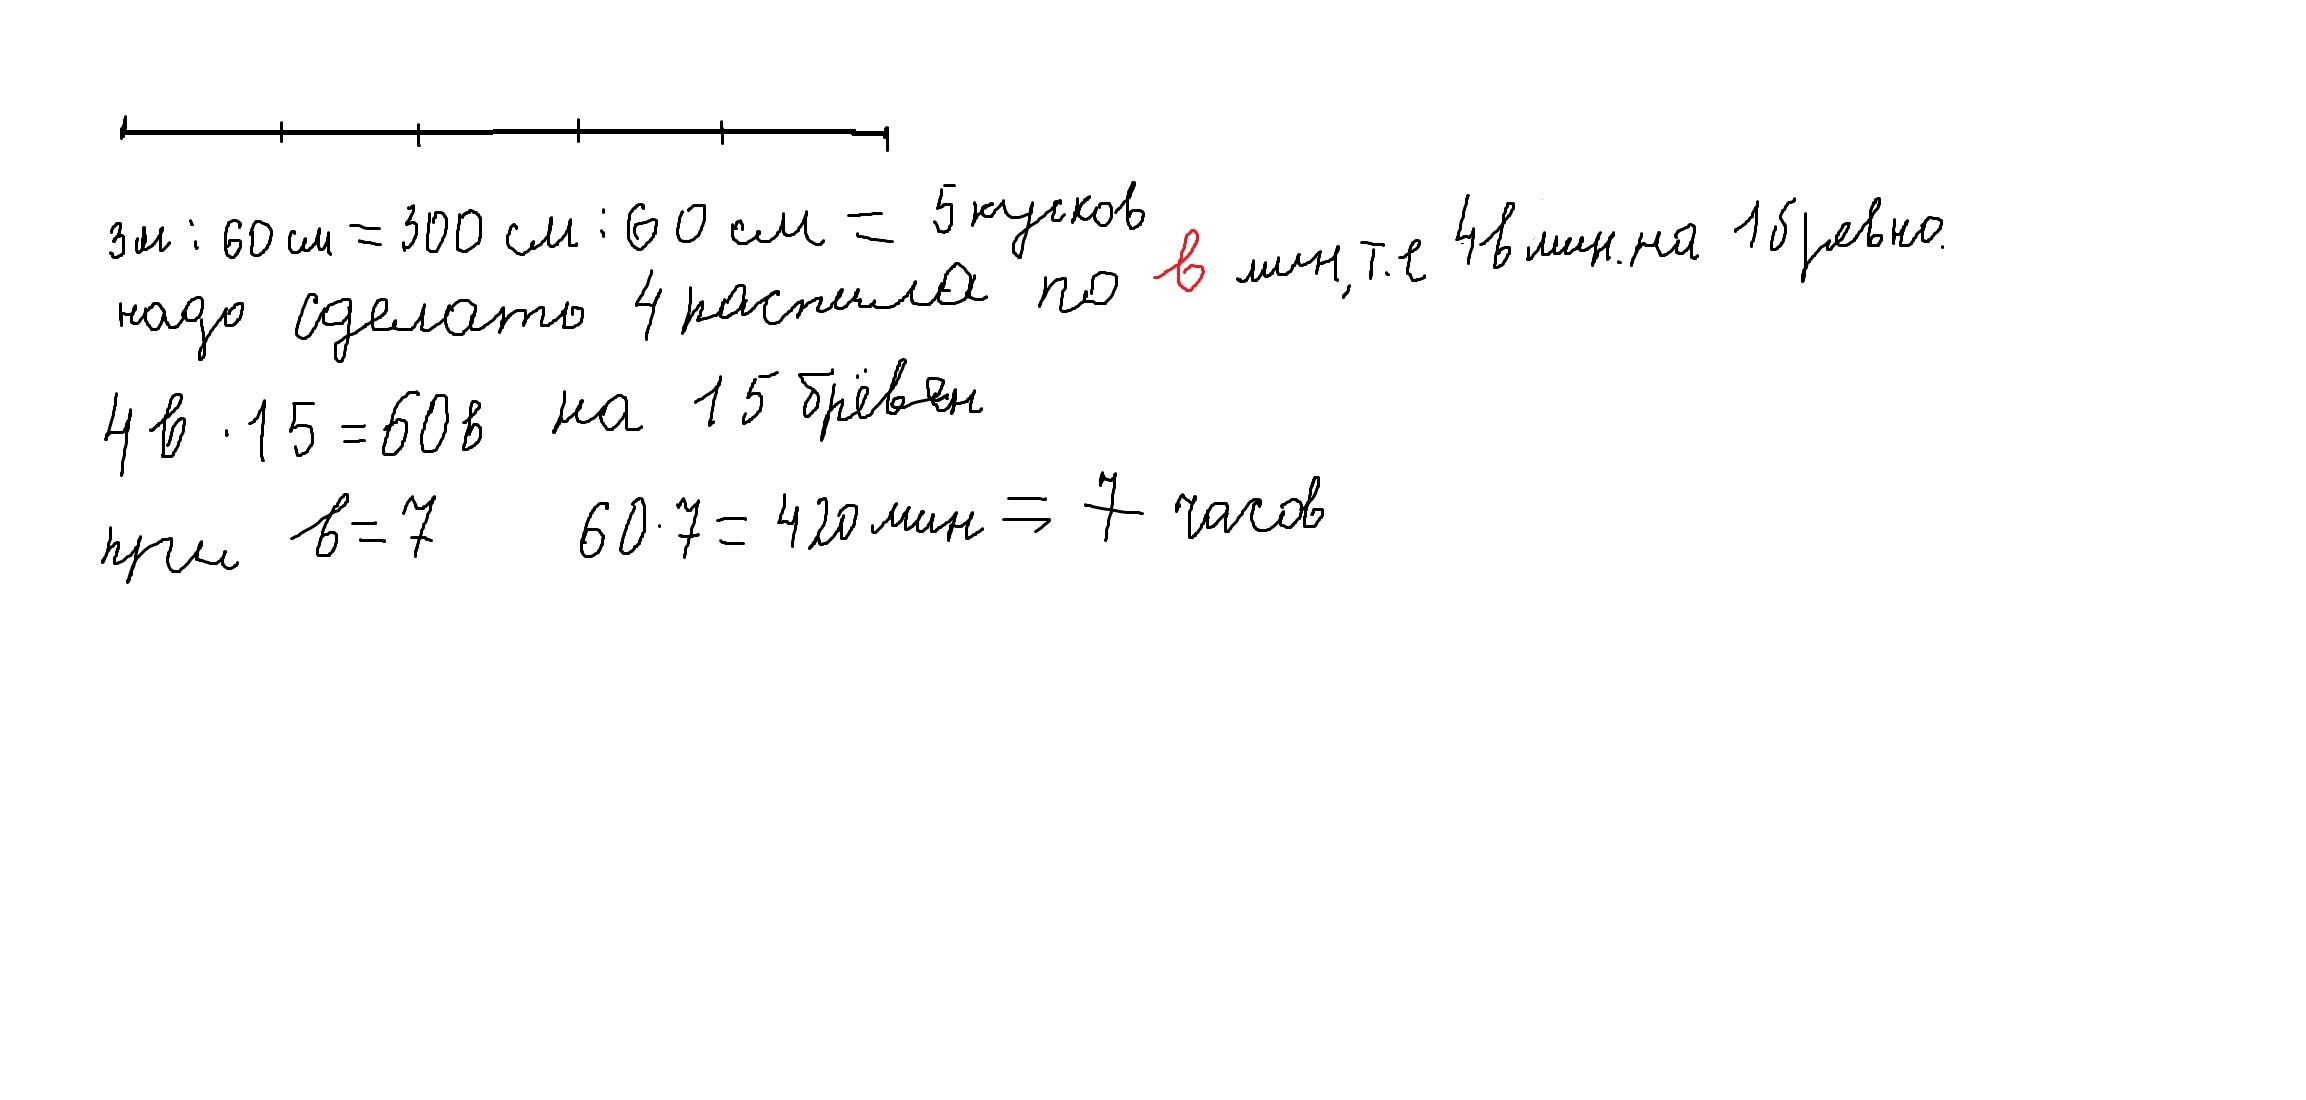 3м : 60 см = 300 см : 60 см = 5 кусков
надо сделать 4 распила по в мин, т.е 4в мин. на 1 бревно.
4в · 15 = 60в на 15 брёвен
при в = 7 60 · 7 = 420 мин = 7 часов